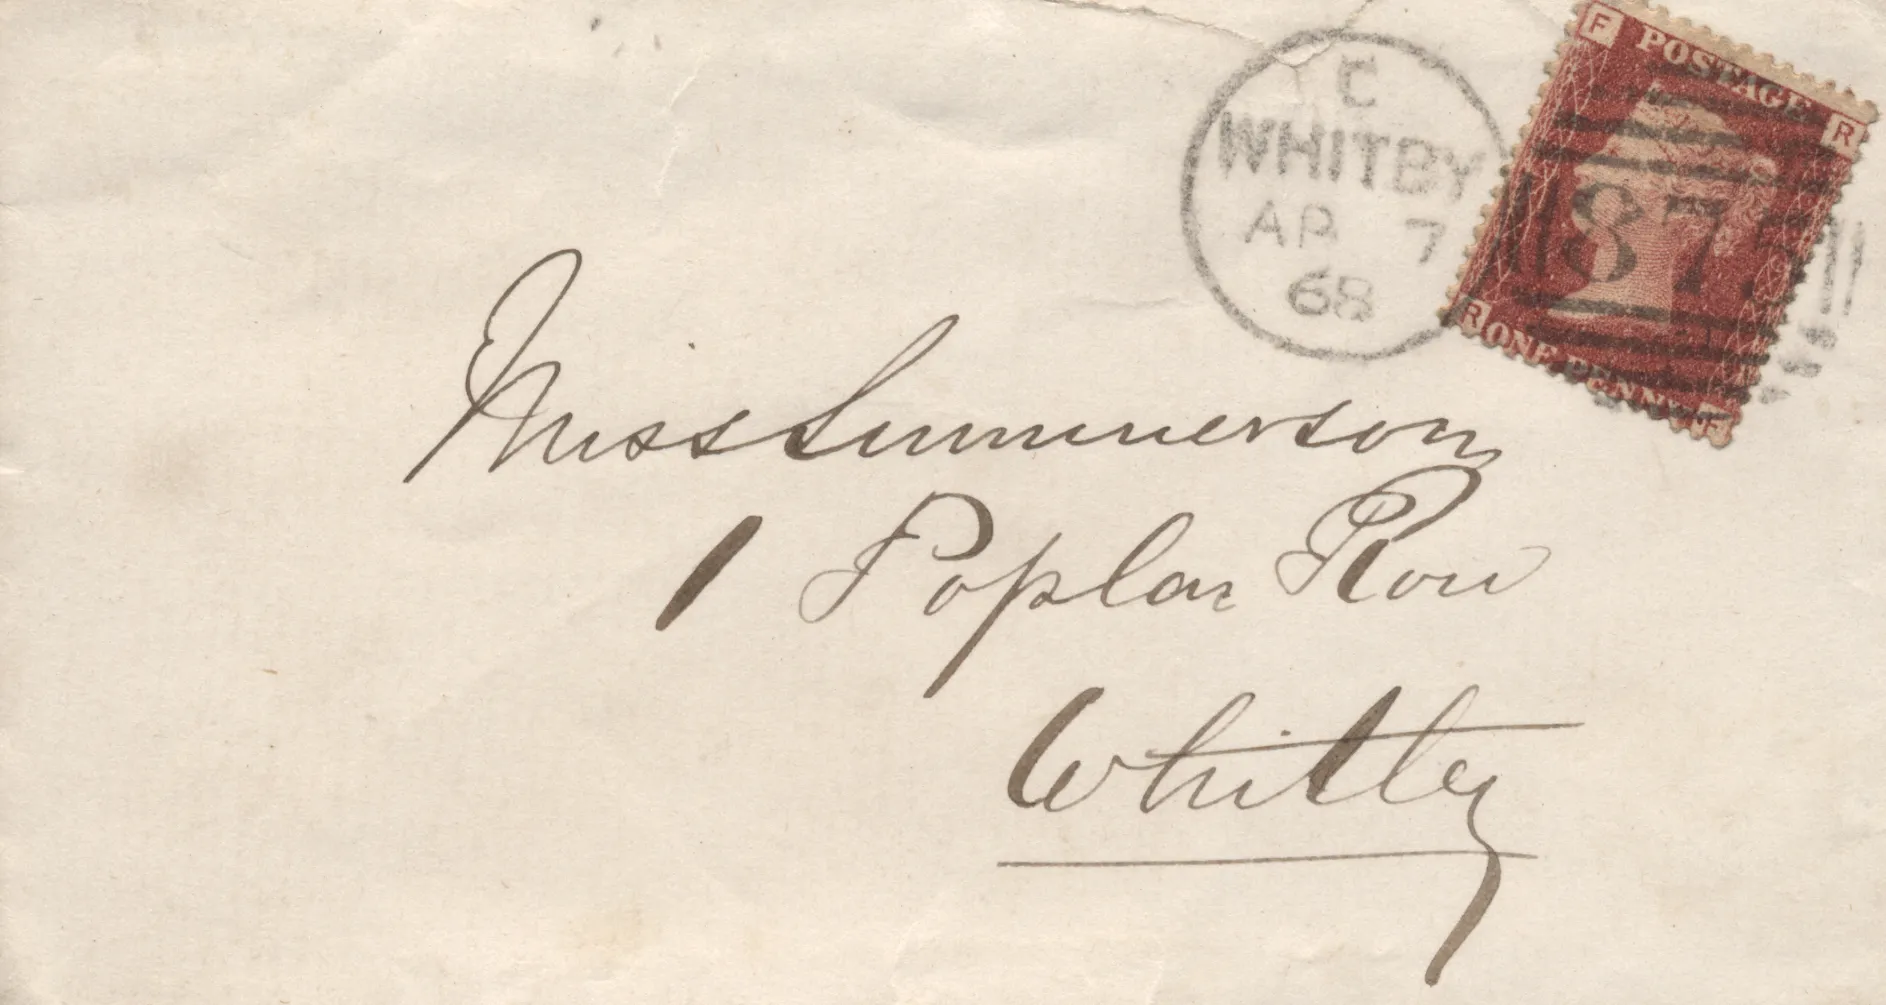 C
WHITBY
AP 7
68
F POSTAGE R
877
R ONE PENNY F
Miss Summerson
1 Poplar Row
Whitby